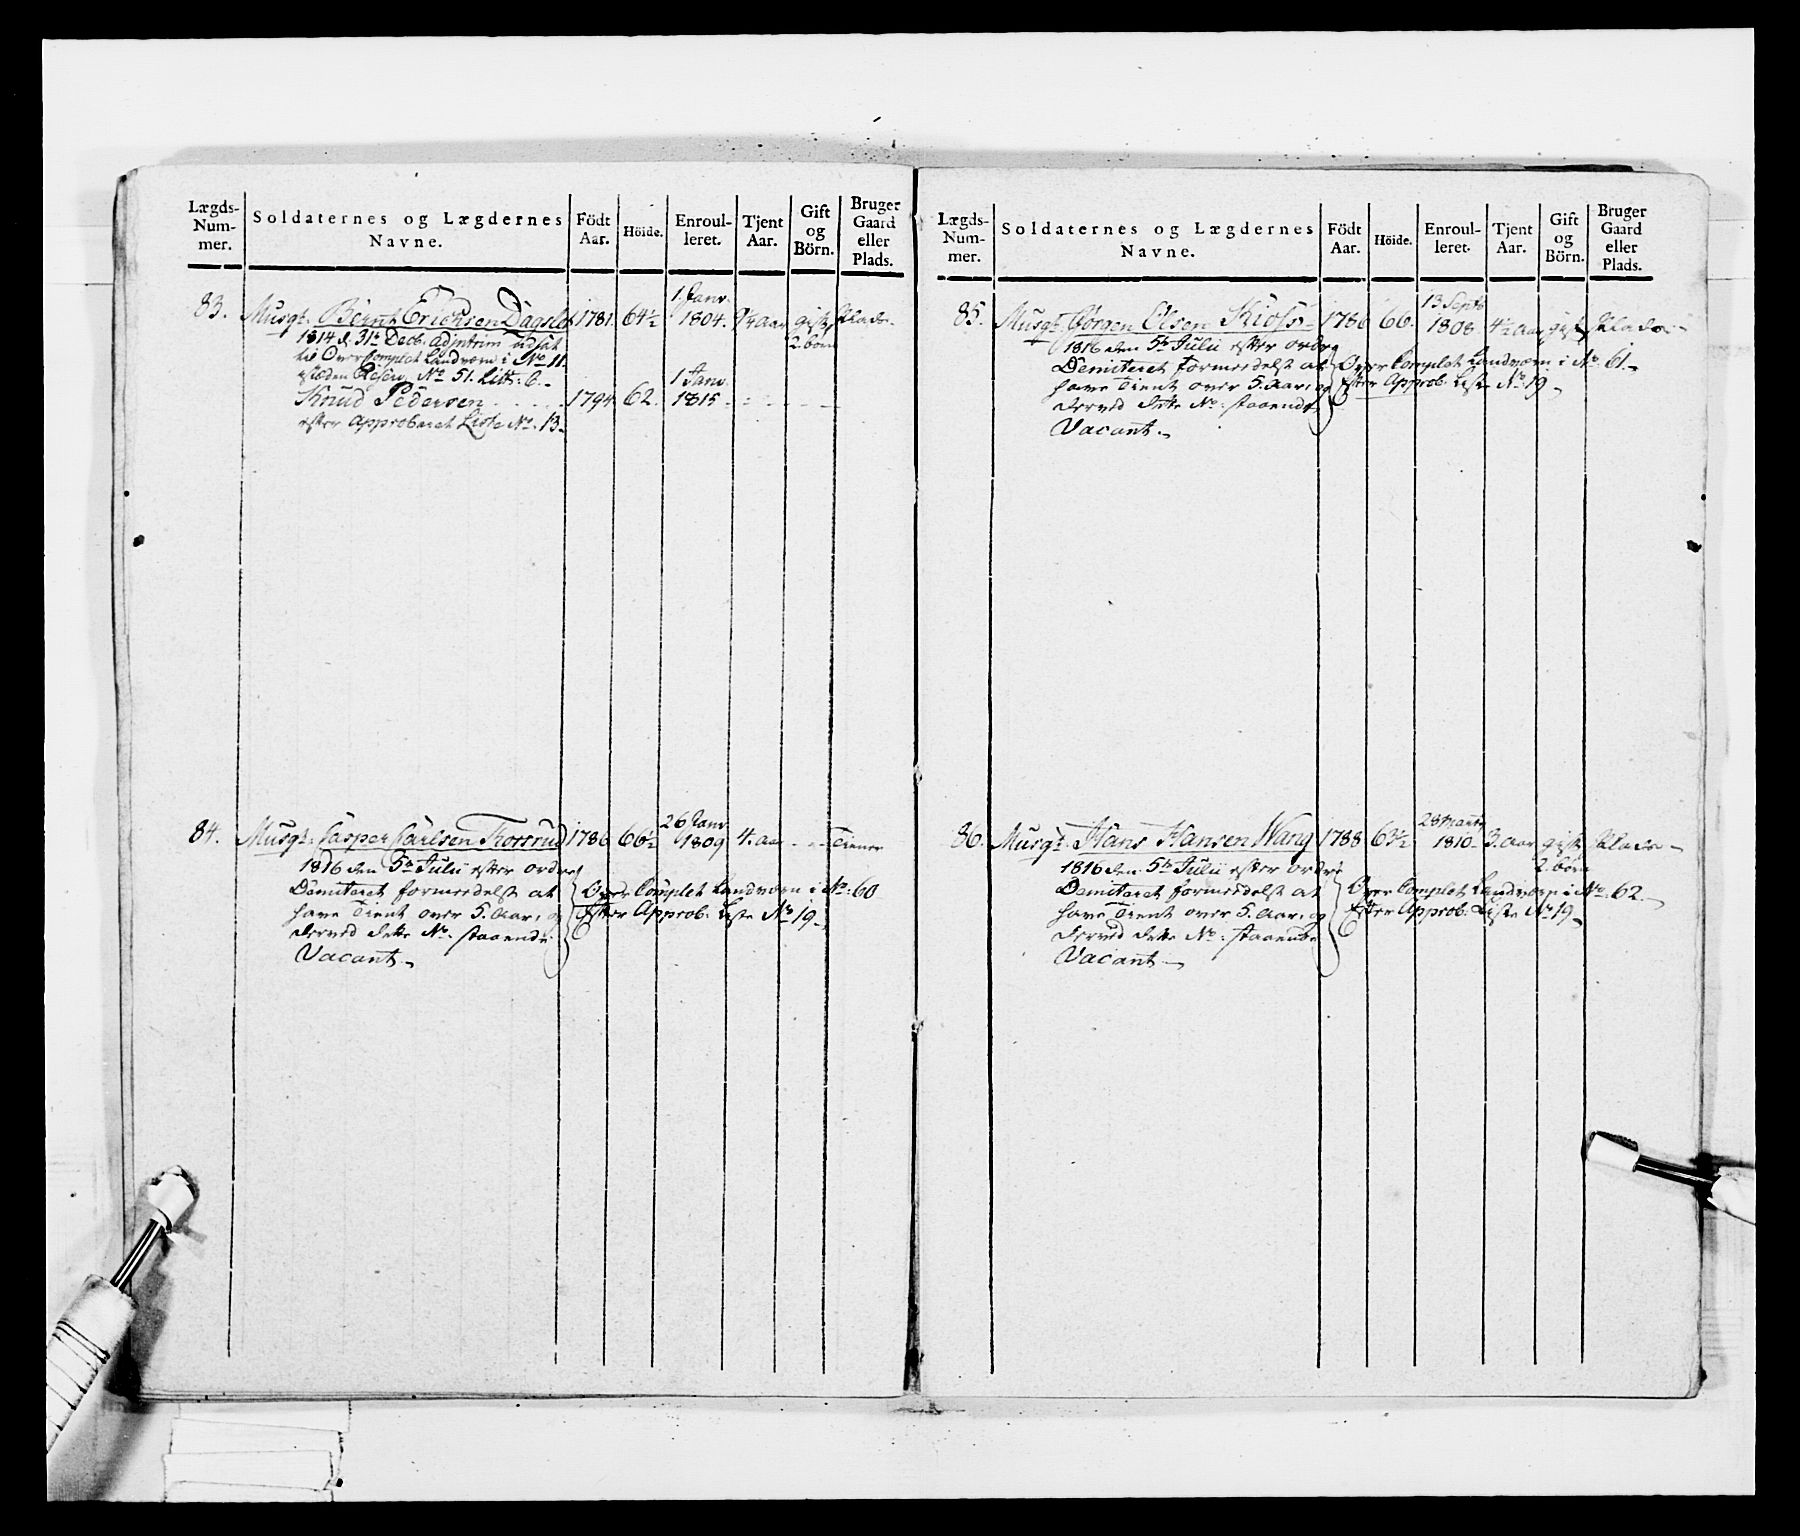 Lægds-Num-mer. Soldaternes og Lægdernes Navne. Födt Aar. Höide. Enroul-leret. Tjent Aar. Gift og Börn. Bruger Gaard eller Plads.
1. Janv.
83. Musqt. Bernt Erichsen Dagslet 1781. 64½ 1804. Aar gift Plads.
1814 d. 31te Decb. adjntrim udsat 2. börn
til OverComplet Landværn i No. 11.
istæden Reserv No. 51. Litr: C.
1 Janv.
Knud Pedersen 1794 62. 1815
efter Approberet Liste No. 13
26 Janv
84. Musqt. Casper Carlsen Thorsrud 1786 66½ 1809 4. aar Tiener
1816 den 5te Julii efter ordre
Demiteret formedelst at Over Complet Landværn i No. 60
have Tient over 5. Aar, og Efter Approb: Liste No 19
derved dette No. staaende
Vacant
Lægds-Num-mer. Soldaternes og Lægdernes Navne. Födt Aar. Höide. Enroul-leret. Tjent Aar. Gift og Börn. Bruger Gaard eller Plads.
13 Septb
85. Musqt. Jörgen Olsen Kioss 1786 66. 1808 4½ aar gift Plads
1816 den 5te Julii efter ordre
Demiteret formedelst at Over Complet Landværn i No. 61.
have Tient over 5. Aar, og Efter Approb: Liste No. 19
derved dette No. staaende
Vacant.
28 Martz
86. Musqt. Hans Hansen Wang 1788 63½ 1810 3. aar gift Plads
1816 den 5te Julii efter ordre 2. börn
Demiteret formedelst at Over Complet Landværn i No. 62.
have Tient over 5. Aar, og Efter Approb: Liste No 19
derved dette No. staaende
Vacant